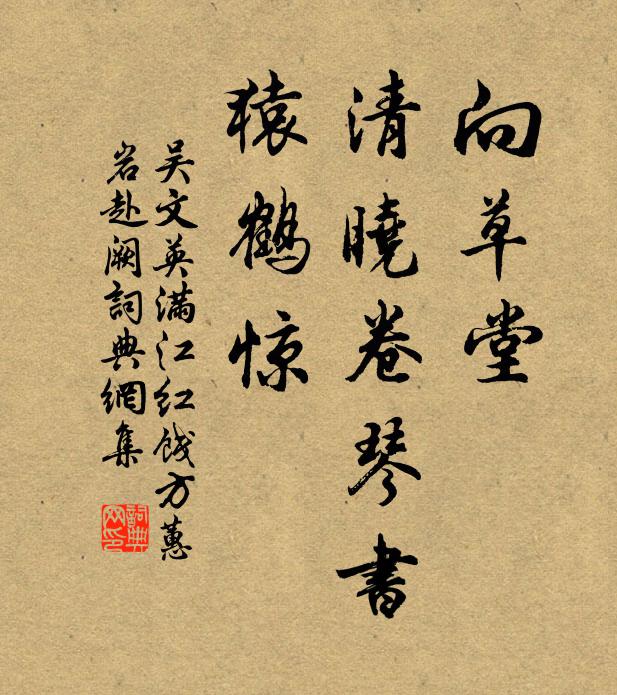 向草堂
清曉卷琴書
猿鶴惊
吴文英满江红饯方蕙
岩赴阙詞典網集
詞典网印